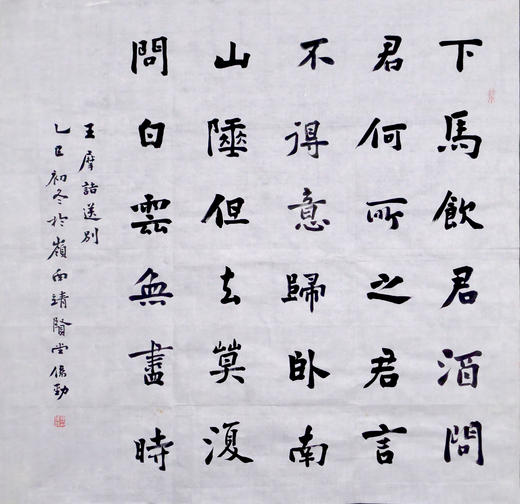 下馬飲君酒問
君何所之君言
不得意歸卧南
山陲但去莫復
問白雲無盡時
王摩詰送別
乙巳初冬於嶺南靖賢堂保勁